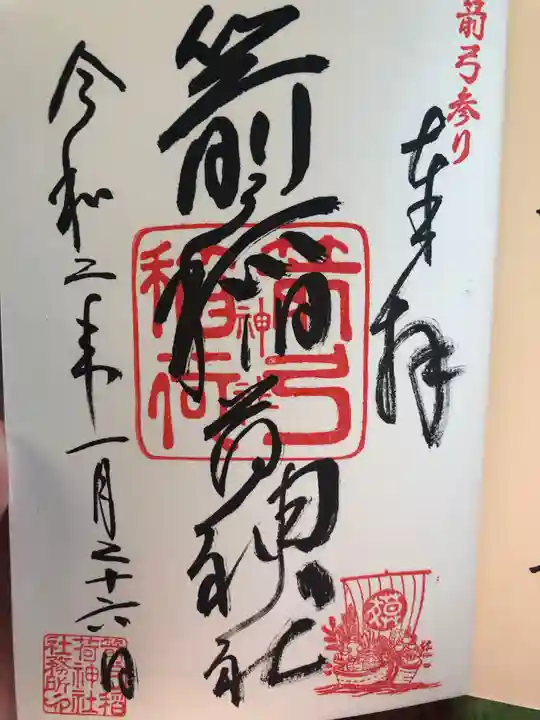 箭弓参り
奉拝
箭弓稲荷神社
箭弓稲荷神社
令和二年一月二十六日
箭弓稲荷神社社務所